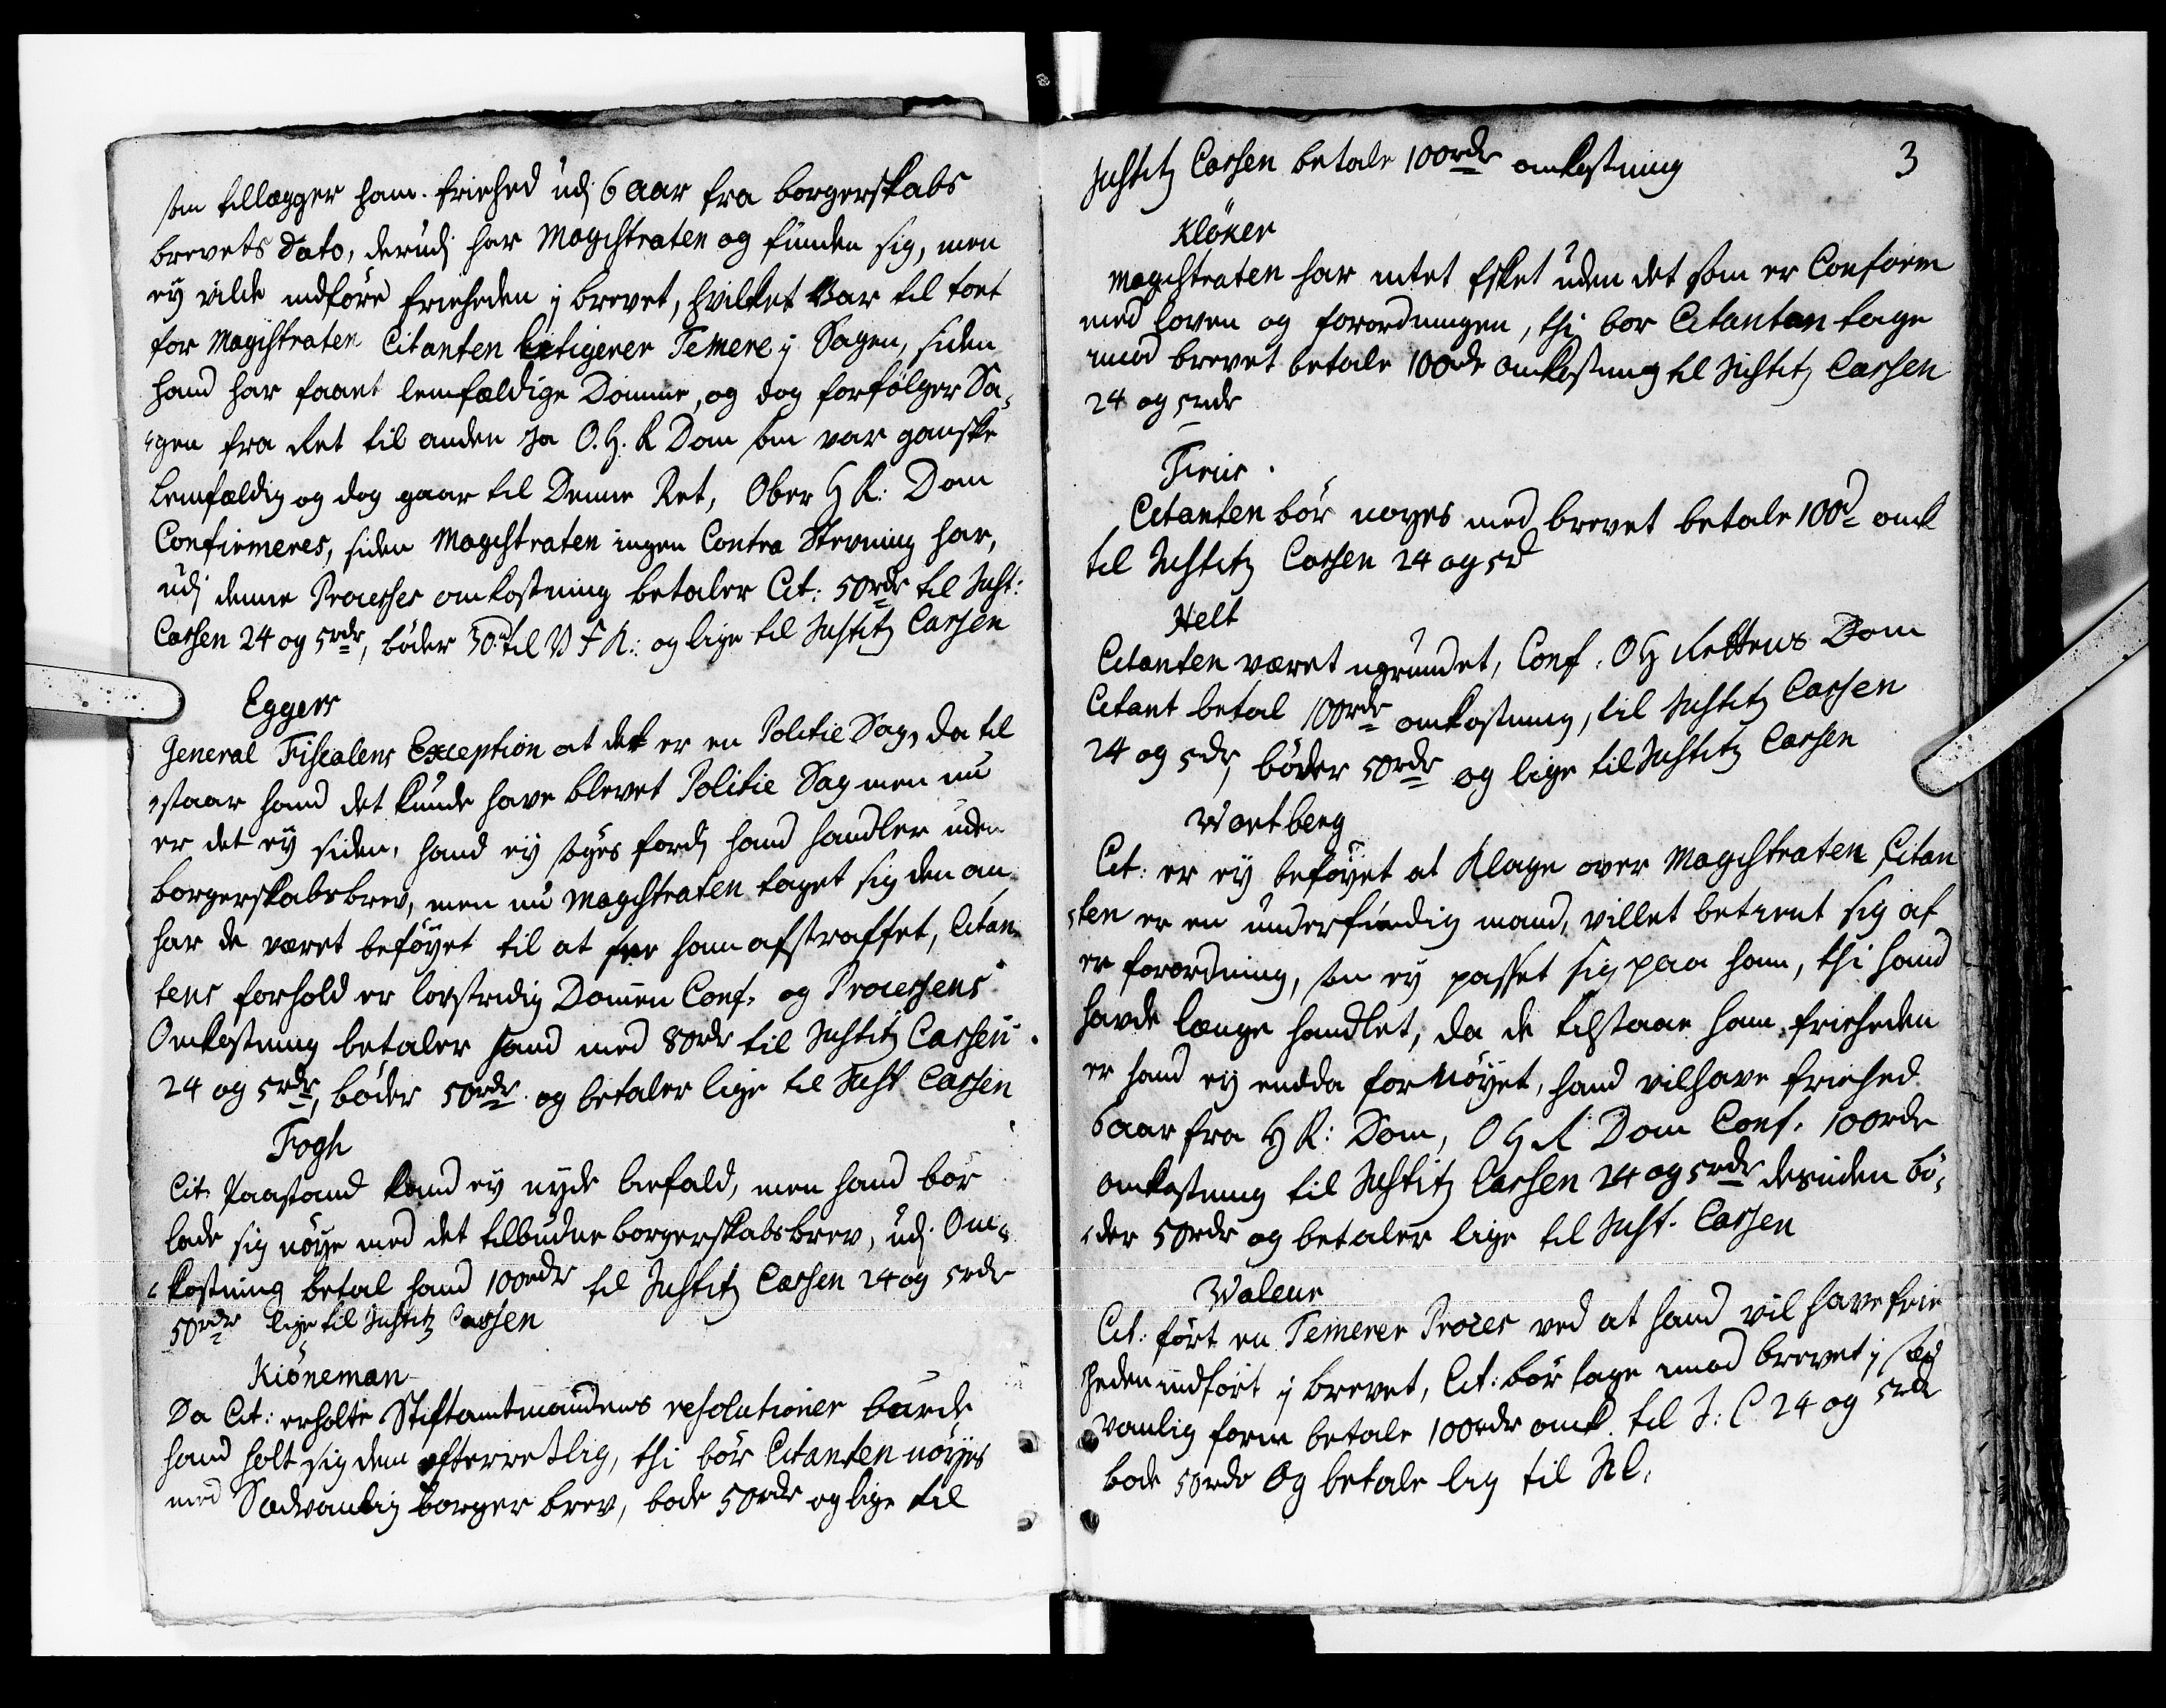 som tillægger ham friehed udj 6 aar fra borgerskabs
brevets dato, derudj har Magistraten og funden sig, men
ey vilde indføre frieheden j brevet, hvilket var til tort
for Magistraten Citanten litigerer Temere j Sagen, siden
hand har faaet lemfældige Domme, og dog forfølger Sa,,
,,gen fra Ret til anden Ja O. H. R Dom som var ganske
Lemfældig og dog gaar til Denne Ret, Ober H R: Dom
Confirmeres, siden Magistraten ingen Contra Stevning har,
udj denne Processes omkostning betaler Cit: 50rdr til Just:
Cassen 24 og 5rdr, bøder 30d til V F K: og lige til Justitz Cassen
Eggers
General Fiscalens Exception at det er en Politie Sag, da til
,,staar hand det kunde have blevet Politie Sag men nu
er det ey siden, hand ey søges fordj hand handler uden
borgerskabsbrev, men nu Magistraten taget sig den an
har de været beføyet til at see ham afstraffet, Citan,,
tens forhold er lovstridig Dommen Conf. og Processens
Omkostning betaler hand med 80rdr til Justitz Cassen
24 og 5rdr, bøder 50rdr og betaler lige til Just Cassen
Fogh
Cit. Paastand kand ey nyde biefald, men hand bør
lade sig nøye med det tilbudne borgerskabsbrev, udj Om,,
,,kostning betal hand 100rdr til Justitz Cassen 24 og 5rdr
50rdr lige til Justitz Cassen
Kiöneman
Da Cit: erholte Stiftamtmandens resolutioner burde
hand holt sig dem efterretlig, thi bør Citanten nøyes
med Sædvanlig borger brev, bøde 50rdr og lige til
3
Justitz Cassen betale 100rdr omkostning
Klöker
Magistraten har intet sket uden det som er Conform
med loven og forordningen, thi bør Citanten tage
imod brevet betale 100rdr omkostning til Justitz Cassen
24 og 5rdr
Citanten bør nøyes med brevet betale 100d omk
til Justitz Cassen 24 og 5d
Helt
Citanten været ugrundet, Conf. O H Rettens Dom
Citant betal 100rdr omkostning, til Justitz Cassen
24 og 5dr, bøder 50rdr og lige til Justitz Cassen
Wartberg
Cit: er ey beføyet at Klage over Magistraten Citan
,,ten er en underfundig mand, villet betient sig af
en forordning, som ey passet sig paa ham, thi hand
havde længe handlet, da de tilstaae ham frieheden
er hand ey endda fornøyet, hand vil have friehed
6 aar fra H R: Dom, O H R Dom Conf. 100rdr
omkostning til Justitz Cassen 24 og 5rdr desuden bø,,
,,der 50rdr og betaler lige til Just. Cassen
Walene
Cit: ført en Temerer Proces ved at hand vil have frie
heden indført j brevet, Cit: bør tage imod brevet j sæd
vanlig form betale 100rdr omk. til J: C 24 og 5rdr
bøde 50rdr Og betale lig til J C.